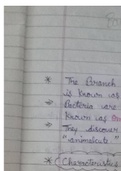 * The Branch
is known as
→ Bacteria are
known as
→ They discover
"animalcule"
* Characteristics